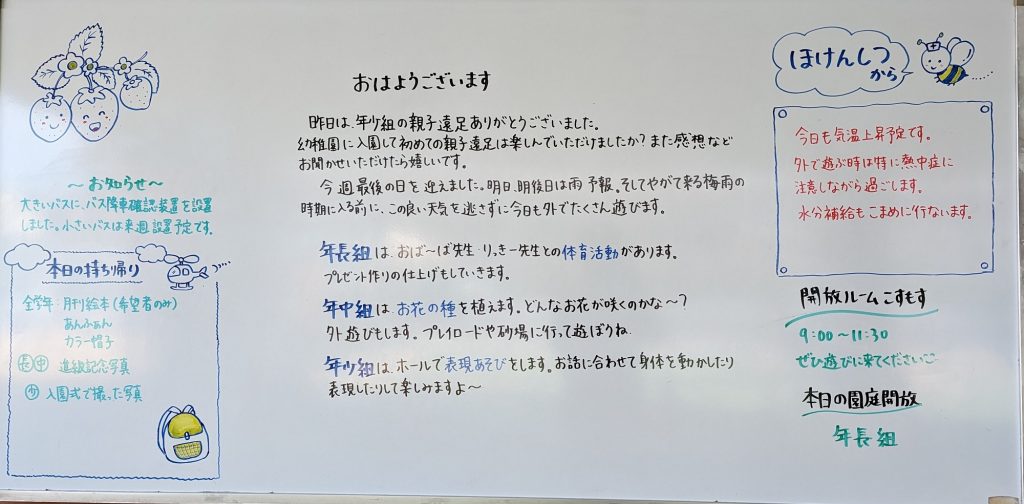 おはようございます
昨日は、年少組の親子遠足ありがとうございました。
幼稚園に入園して初めての親子遠足は楽しんでいただけましたか？また感想など
お聞かせいただけたら嬉しいです。
今週最後の日を迎えました。明日、明後日は雨予報。そしてやがて来る梅雨の
時期に入る前に、この良い天気を逃さずに今日も外でたくさん遊びます。
年長組は、おば〜ば先生・りっきー先生との体育活動があります。
プレゼント作りの仕上げもしていきます。
年中組は、お花の種を植えます。どんなお花が咲くのかな〜？
外遊びもします。プレイロードや砂場に行って遊ぼうね
年少組は、ホールで表現あそびをします。お話に合わせて身体を動かしたり
表現したりして楽しみますよ〜
〜お知らせ〜
大きいバスに、バス降車確認装置を設置
しました。小さいバスは来週設置予定です。
本日の持ち帰り
全学年：月刊絵本(希望者のみ)
あんふぁん
カラー帽子
長 中 進級記念写真
少 入園式で撮った写真
ほけんしつ
から
今日も気温上昇予定です。
外で遊ぶ時は特に熱中症に
注意しながら過ごします。
水分補給もこまめに行ないます。
開放ルームこすもす
9:00〜11:30
ぜひ遊びに来てください
本日の園庭開放
年長組